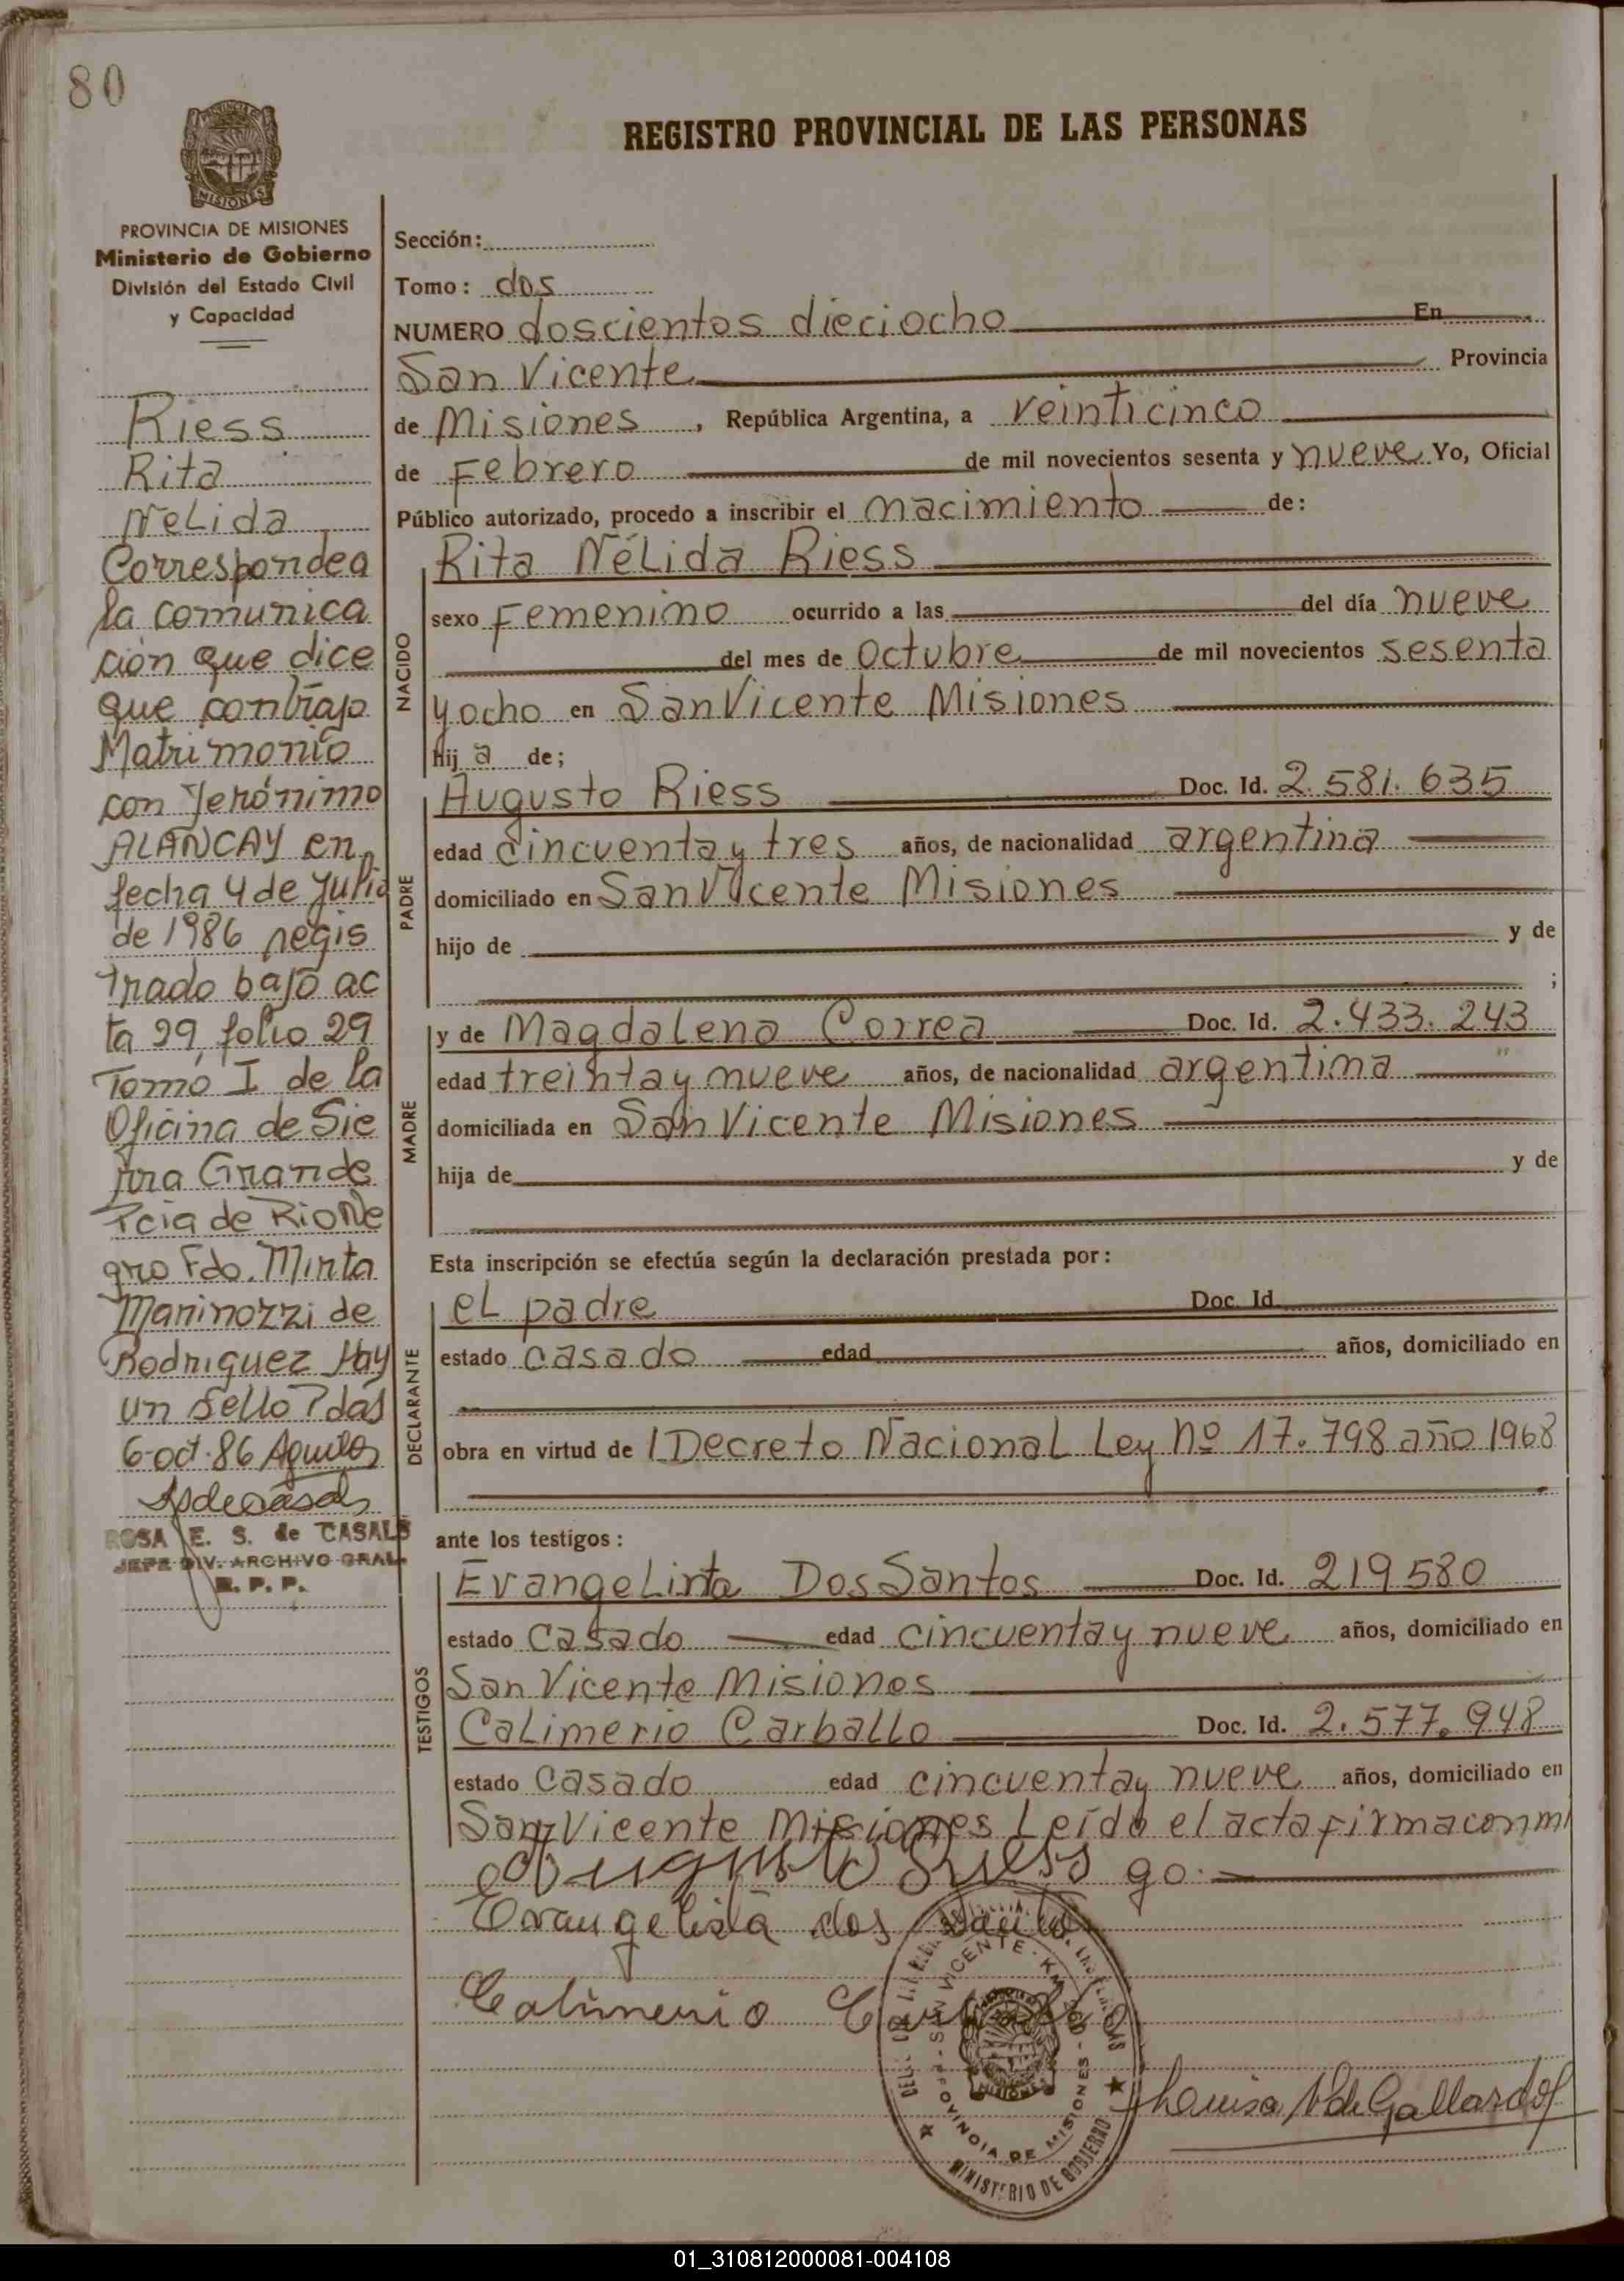 80
REGISTRO PROVINCIAL DE LAS PERSONAS
PROVINCIA DE MISIONES
Ministerio de Gobierno
División del Estado Civil
y Capacidad
Riess
Rita
Nelida
Corresponde a
la comunica
ción que dice
que contrajo
Matrimonio
con Jerónimo
ALANCAY en
fecha 4 de Julio
de 1986 regis
trado bajo ac
ta 29, folio 29
Tomo I de la
Oficina de Sie
rra Grande
Pcia de Rio Ne
gro Fdo. Mirta
Marinozzi de
Rodriguez Hay
un sello Pdas
6-oct-86
ROSA E. S. de CASALS
JEFE DIV. ARCHIVO GRAL.
R. P. P.
Sección:
Tomo: dos
NUMERO doscientos dieciocho En
San Vicente Provincia
de Misiones, República Argentina, a veinticinco
de Febrero de mil novecientos sesenta y nueve Yo, Oficial
Público autorizado, procedo a inscribir el nacimiento de:
NACIDO
Rita Nélida Riess
sexo Femenino ocurrido a las del día nueve
del mes de octubre de mil novecientos sesenta
y ocho en San Vicente Misiones
hij a de;
PADRE
Augusto Riess Doc. Id. 2.581.635
edad cincuenta y tres años, de nacionalidad argentina
domiciliado en San Vicente Misiones
hijo de y de
;
MADRE
y de Magdalena Correa Doc. Id. 2.433.243
edad treinta y nueve años, de nacionalidad argentina
domiciliada en San Vicente Misiones
hija de y de
Esta inscripción se efectúa según la declaración prestada por:
DECLARANTE
el padre Doc. Id.
estado casado edad años, domiciliado en
obra en virtud de l Decreto Nacional Ley Nº 17.798 año 1968
ante los testigos:
TESTIGOS
Evangelista Dos Santos Doc. Id. 219580
estado casado edad cincuenta y nueve años, domiciliado en
San Vicente Misiones
Calimerio Carballo Doc. Id. 2.577.948
estado casado edad cincuenta y nueve años, domiciliado en
San Vicente Misiones Leído el acta firma con mi
Augusto Riess go.
Evangelista dos Santos
Calimerio Carballo
SAN VICENTE - PROVINCIA DE MISIONES
MINISTERIO DE GOBIERNO
MISIONES
Luisa N de Gallardo
01_310812000081-004108